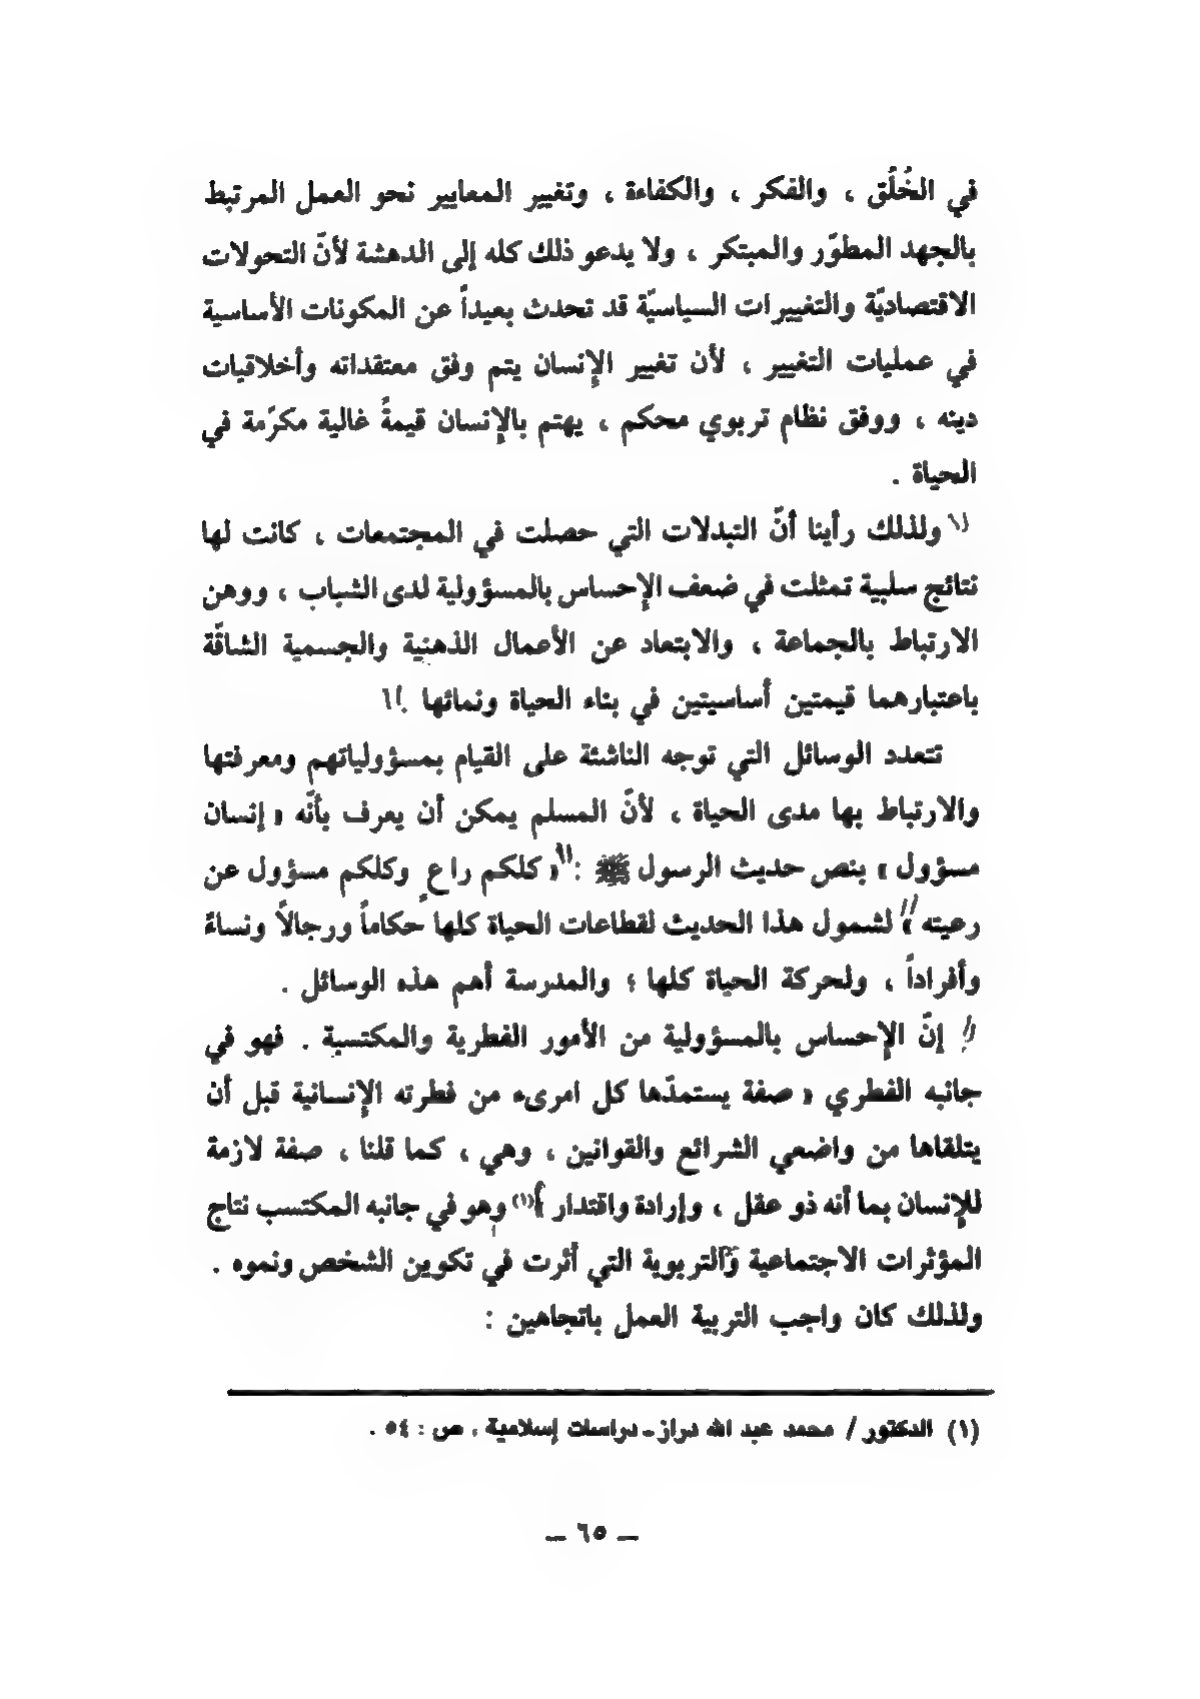 في الخُلُق ، والفكر ، والكفاءة ، وتغيير المعايير نحو العمل المرتبط
بالجهد المطوّر والمبتكر ، ولا يدعو ذلك كله إلى الدهشة لأنّ التحولات
الاقتصاديّة والتغييرات السياسيّة قد تحدث بعيداً عن المكونات الأساسية
في عمليات التغيير ، لأن تغيير الإنسان يتم وفق معتقداته وأخلاقيات
دينه ، ووفق نظام تربوي محكم ، يهتم بالإنسان قيمةً غالية مكرّمة في
الحياة .
ولذلك رأينا أنّ التبدلات التي حصلت في المجتمعات ، كانت لها
نتائج سلبية تمثلت في ضعف الإحساس بالمسؤولية لدى الشباب ، ووهن
الارتباط بالجماعة ، والابتعاد عن الأعمال الذهنية والجسمية الشاقّة
باعتبارهما قيمتين أساسيتين في بناء الحياة ونمائها .
تتعدد الوسائل التي توجه الناشئة على القيام بمسؤولياتهم ومعرفتها
والارتباط بها مدى الحياة ، لأنّ المسلم يمكن أن يعرف بأنّه « إنسان
مسؤول » بنص حديث الرسول ﷺ : « كلكم راعٍ وكلكم مسؤول عن
رعيته » لشمول هذا الحديث لقطاعات الحياة كلها حكاماً ورجالاً ونساءً
وأفراداً ، ولحركة الحياة كلها ؛ والمدرسة أهم هذه الوسائل .
إنّ الإحساس بالمسؤولية من الأمور الفطرية والمكتسبة . فهو في
جانبه الفطري « صفة يستمدّها كل امرىء من فطرته الإنسانية قبل أن
يتلقاها من واضعي الشرائع والقوانين ، وهي ، كما قلنا ، صفة لازمة
للإنسان بما أنه ذو عقل ، وإرادة واقتدار »(١) وهو في جانبه المكتسب نتاج
المؤثرات الاجتماعية والتربوية التي أثرت في تكوين الشخص ونموه .
ولذلك كان واجب التربية العمل باتجاهين :
(١) الدكتور / محمد عبد الله دراز ـ دراسات إسلامية ، ص : ٥٤ .
ـ ٦٥ ـ